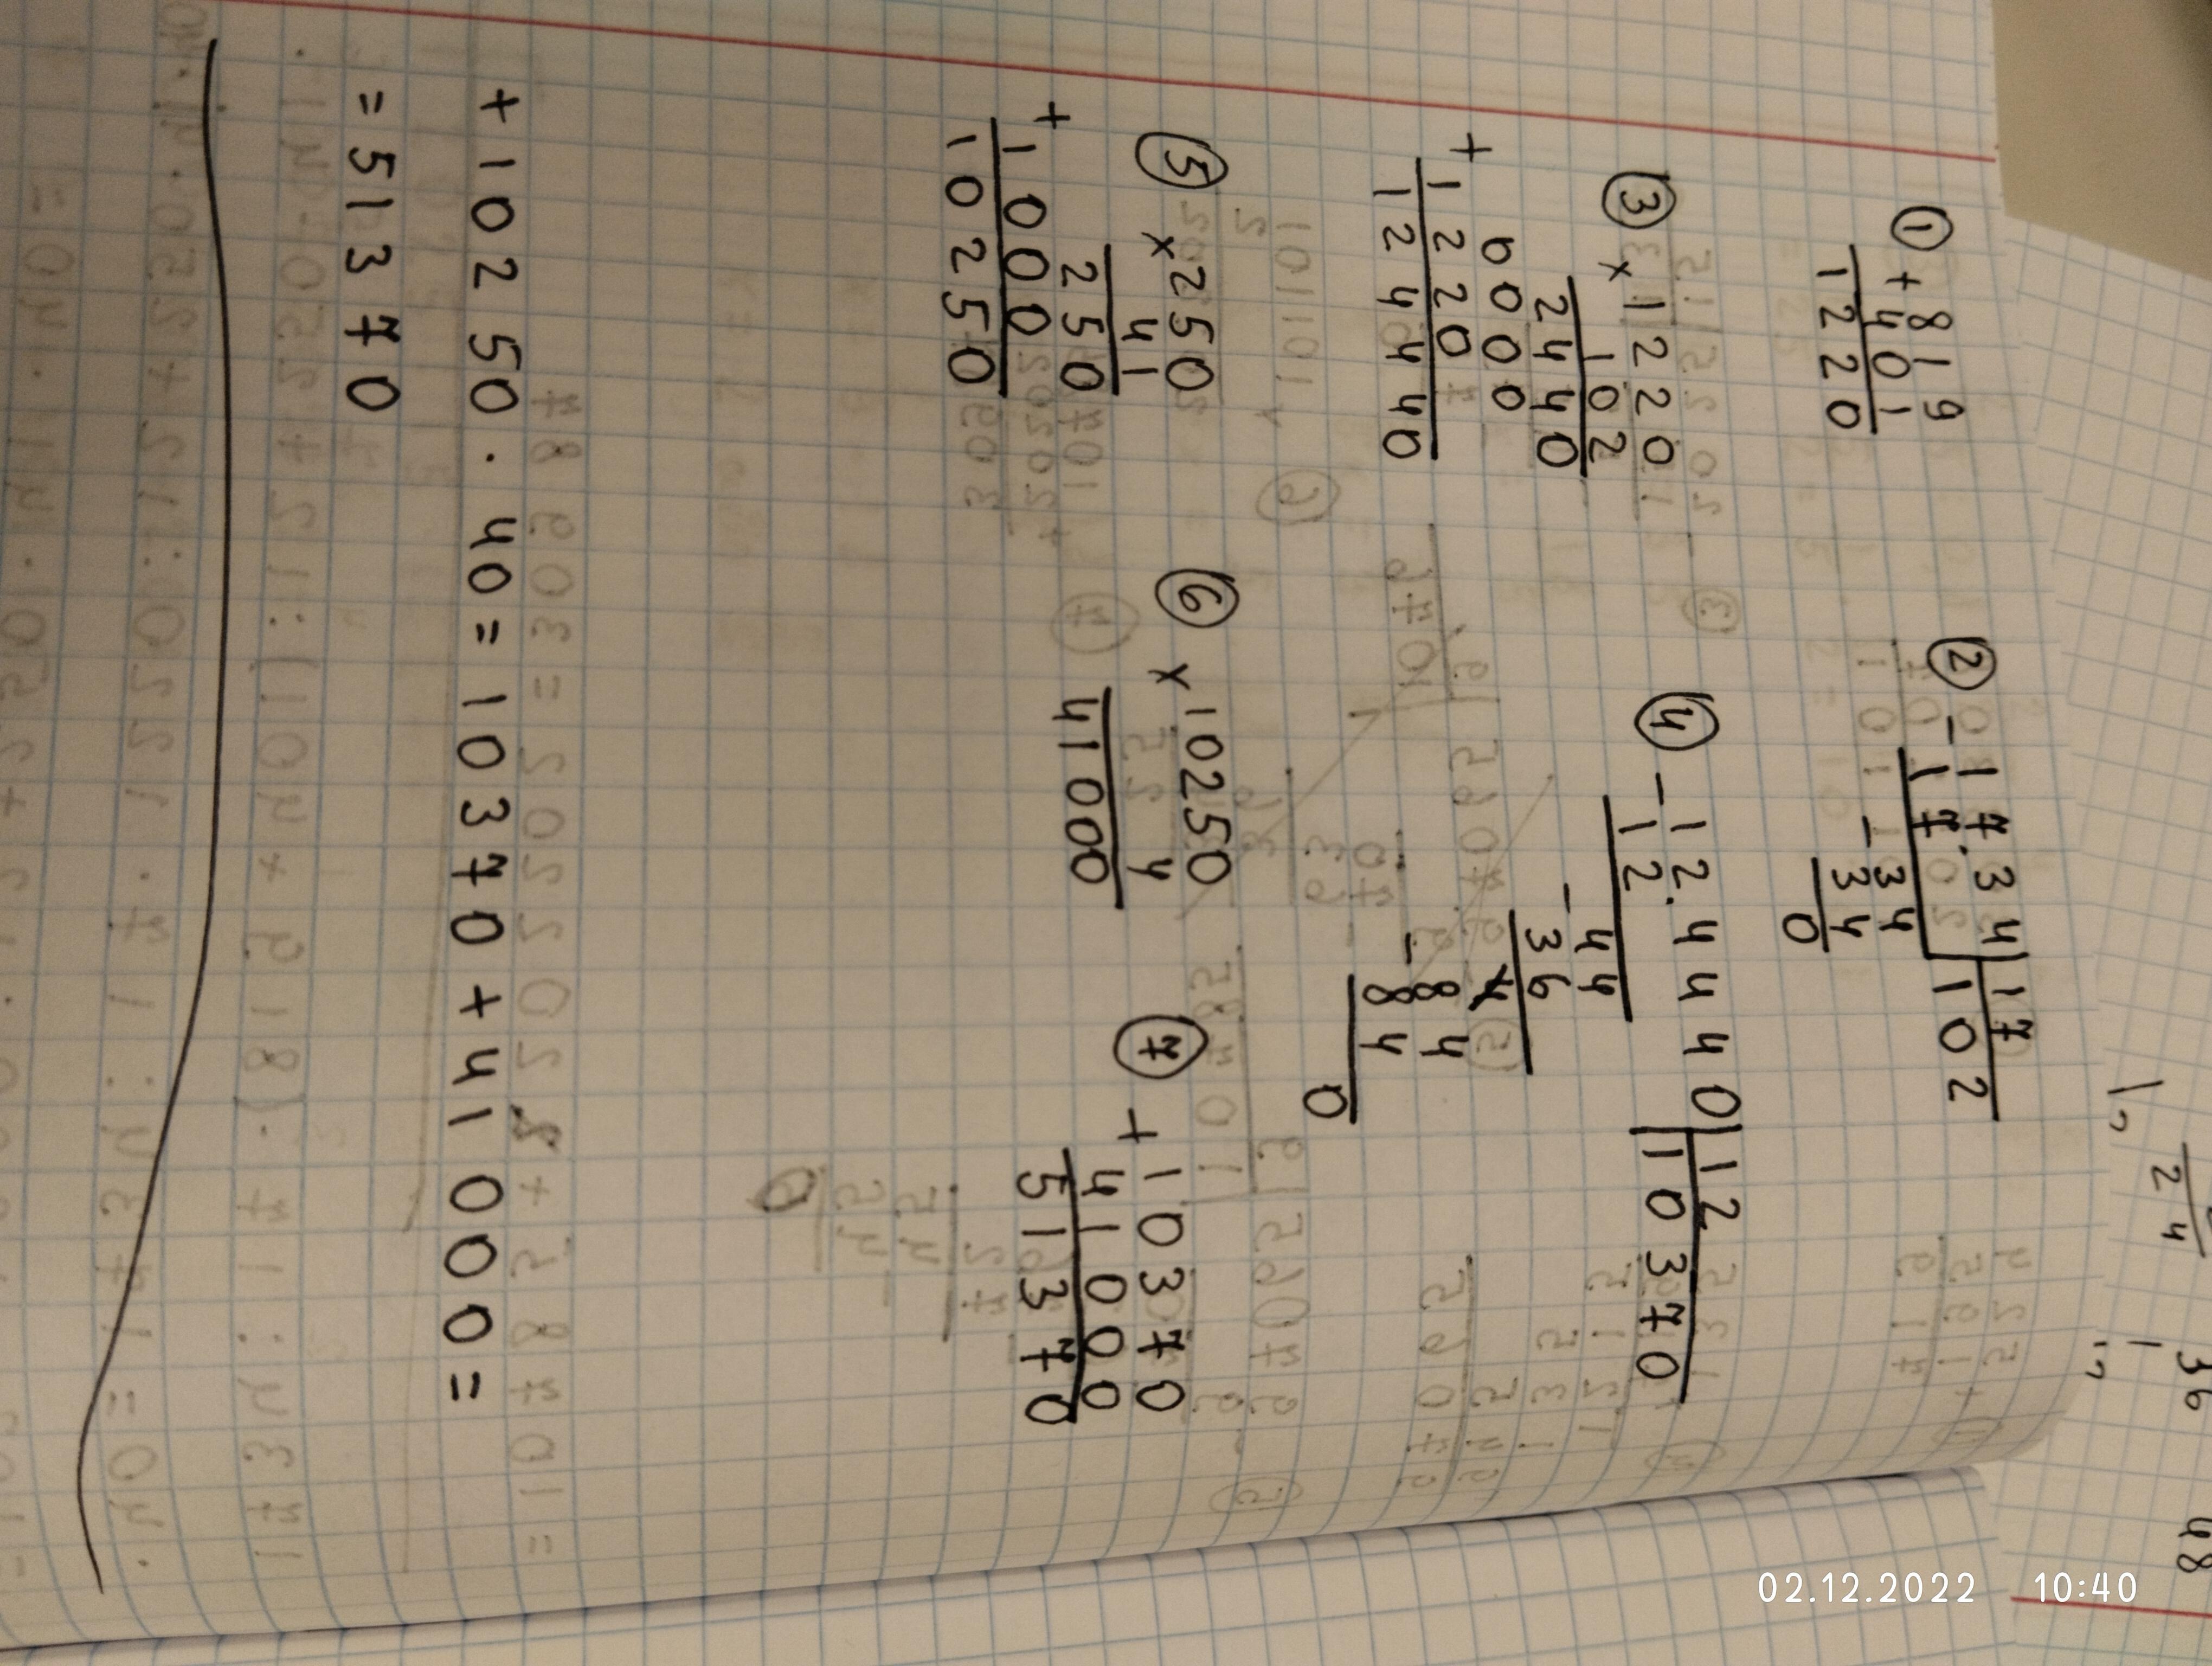 ① + 819 ② - 1734 | 17
401 17 | 102
1220 - 34
34
0
③ × 1220 ④ - 124440 | 12
102 12 | 10370
2440 - 44
0000 36
+ 1220 - 84
124440 84
0
⑤ × 250 ⑥ × 10250 ⑦ + 10370
41 4 41000
250 41000 51370
+ 1000
10250
+ 10250 · 40 = 10370 + 41000 =
= 51370
02.12.2022 10:40